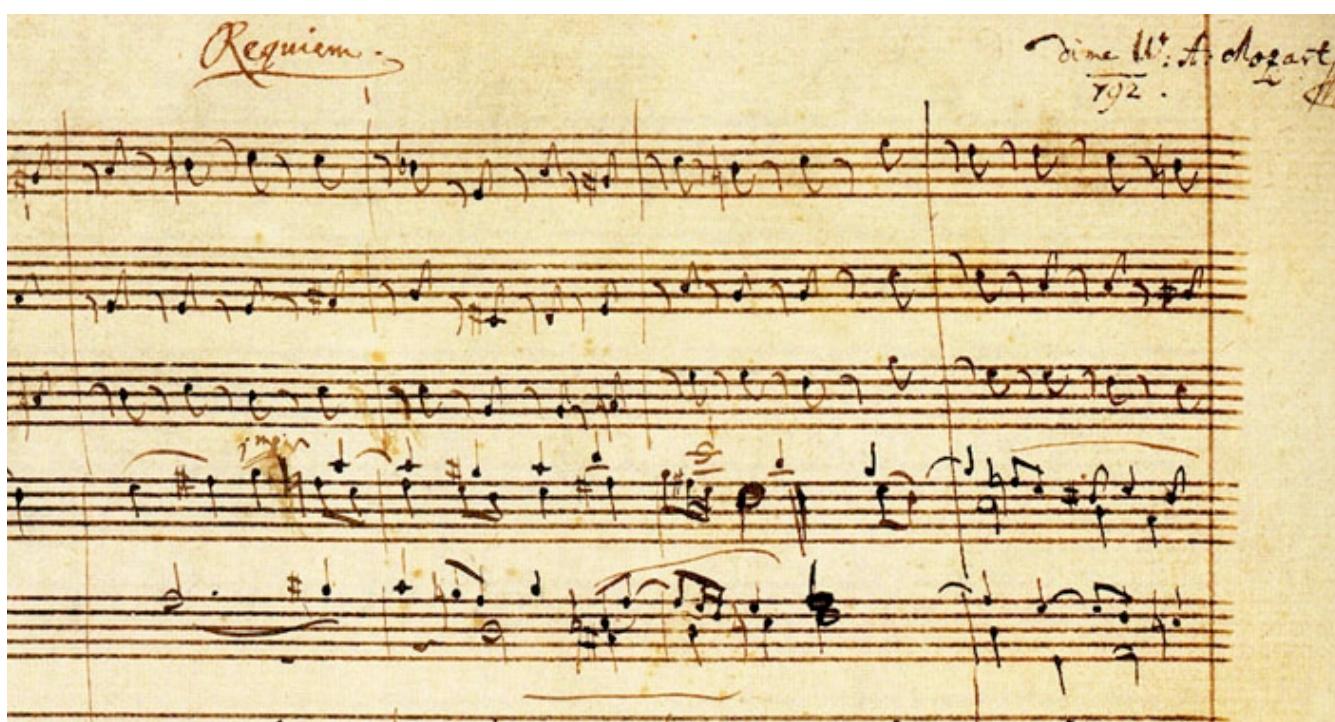 Requiem.
di me W: A: Mozart
792.